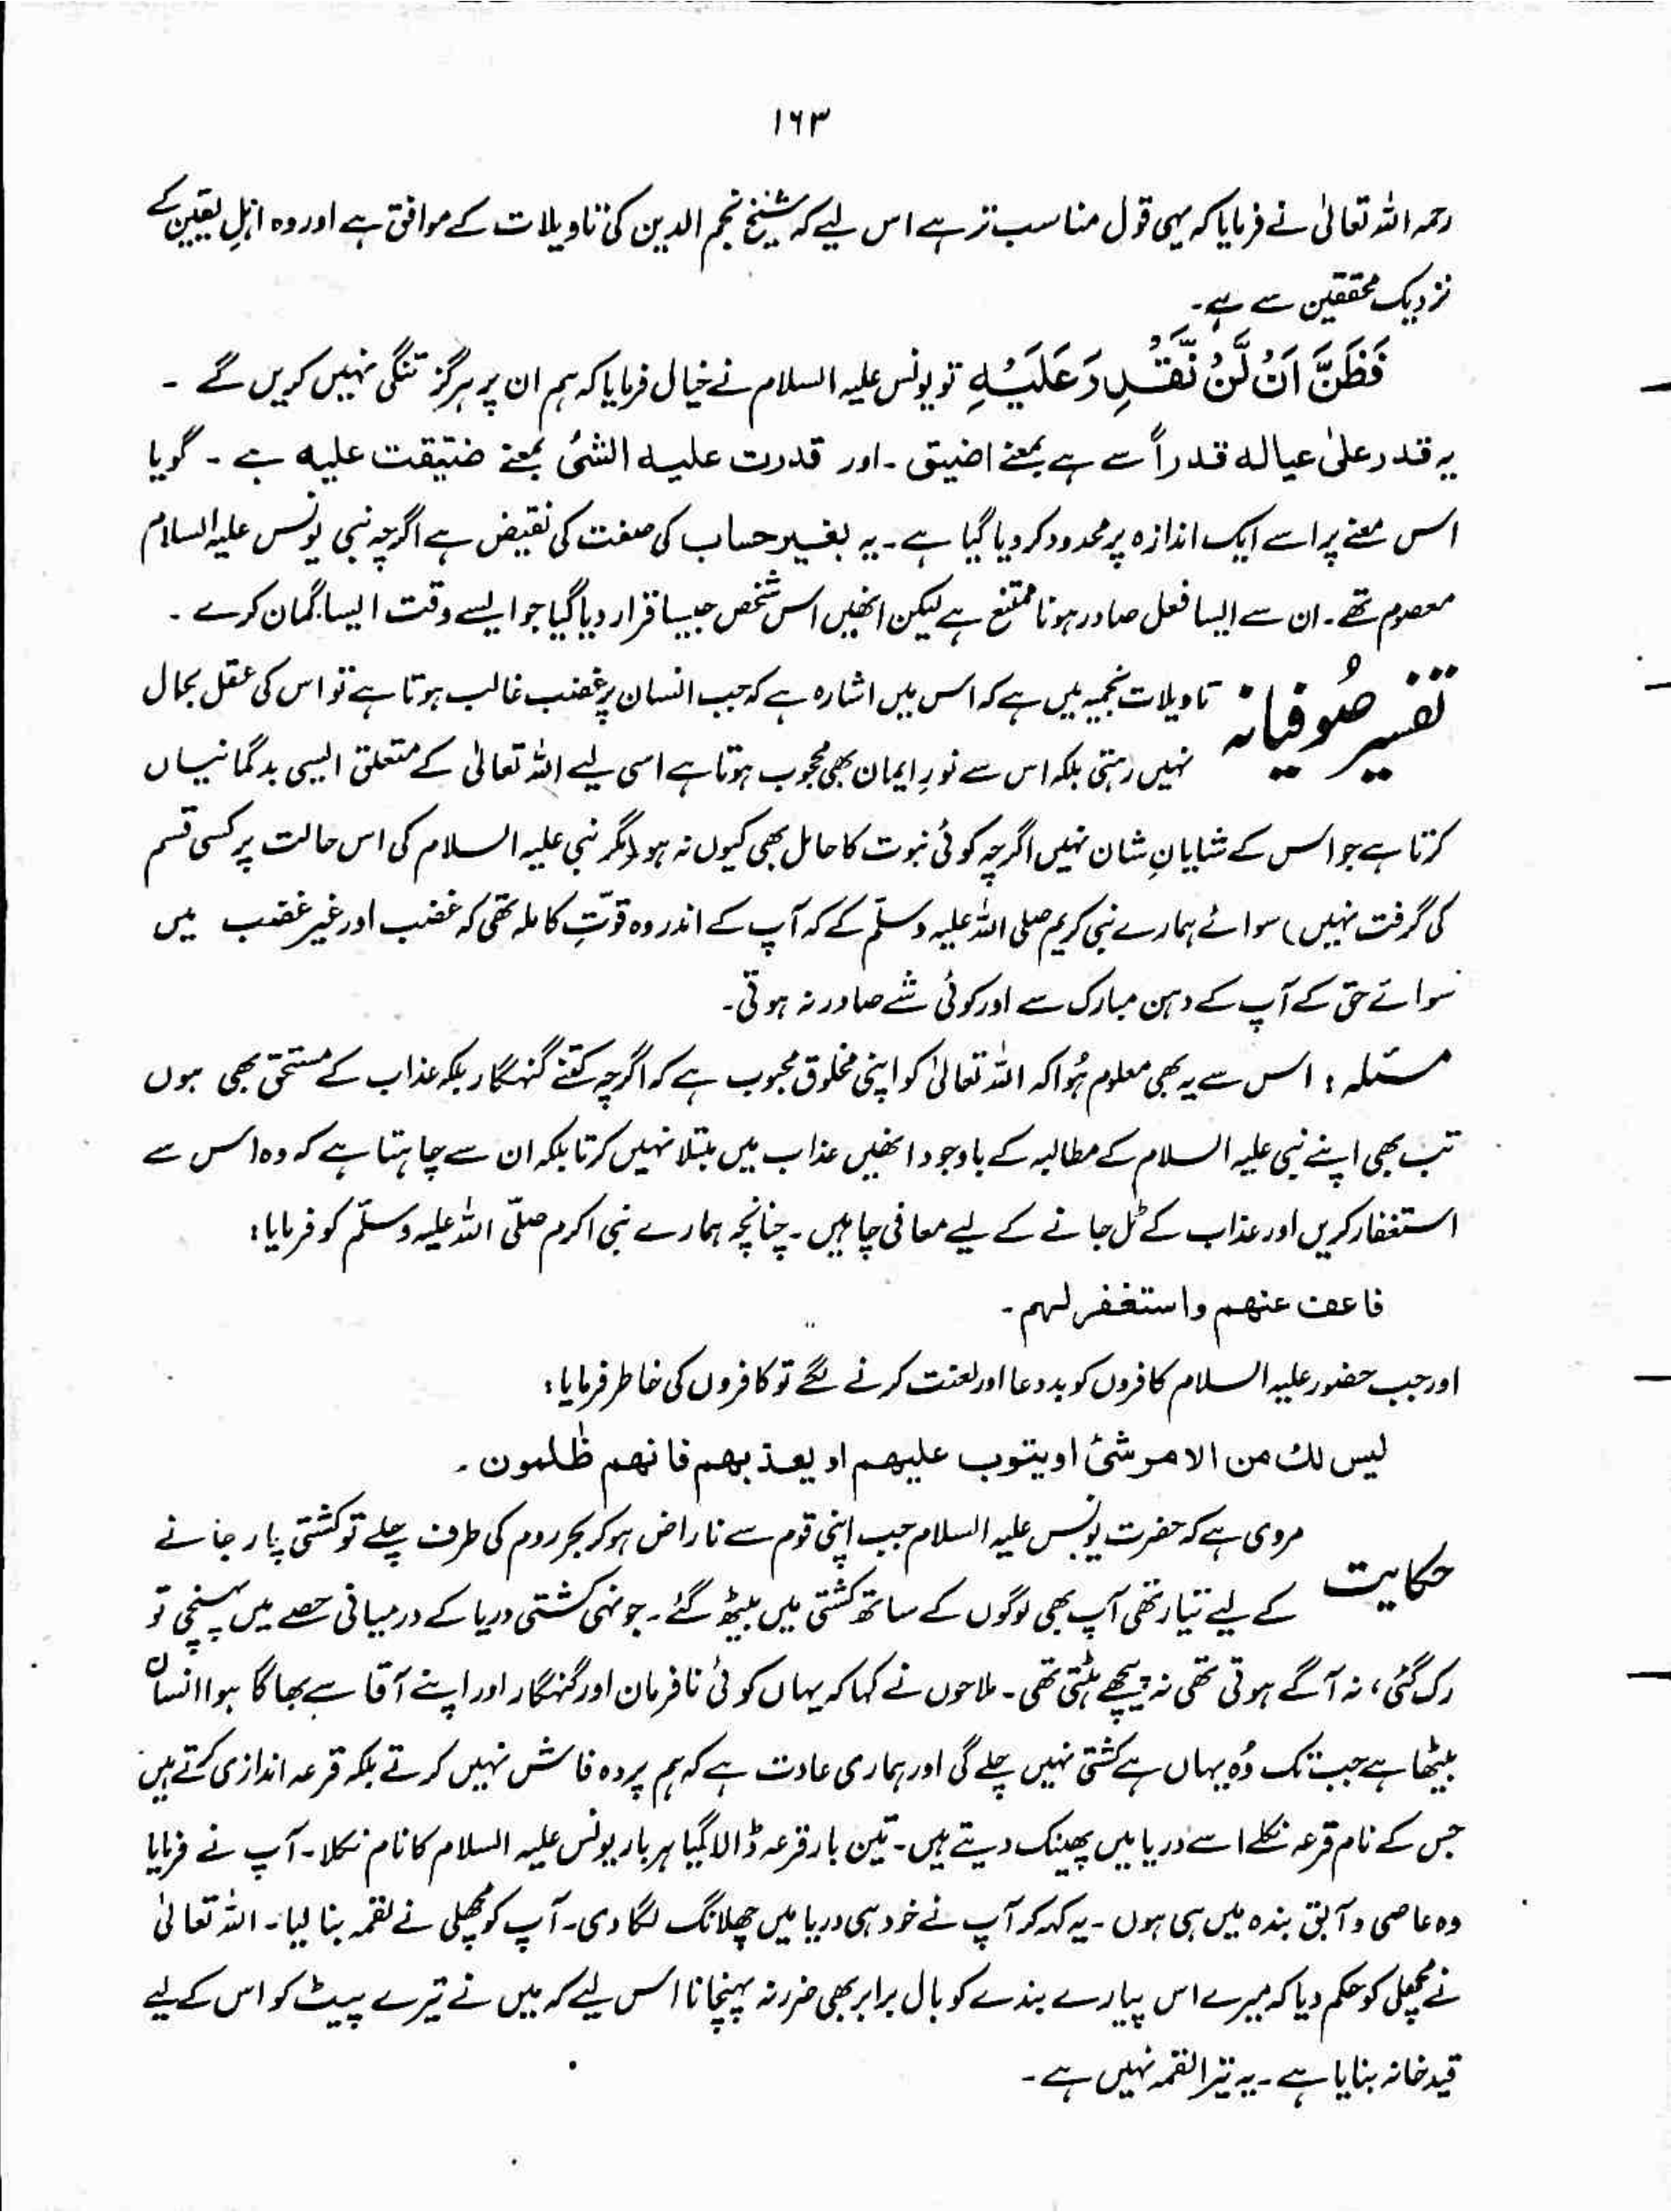 ۱۶۳
رحمہ اللہ تعالیٰ نے فرمایا کہ یہی قول مناسب تر ہے اس لیے کہ شیخ نجم الدین کی تاویلات کے موافق ہے اور وہ اہلِ یقین کے
نزدیک محققین سے ہے۔
فَظَنَّ اَنْ لَّنْ نَّقْدِرَ عَلَيْهِ تو یونس علیہ السلام نے خیال فرمایا کہ ہم ان پر ہرگز تنگی نہیں کریں گے ۔
یہ قدر علیٰ عیالہ قدراً سے ہے بمعنے اضیق ۔ اور قدرت علیہ الشئ بمعنے ضیّقت علیہ ہے ۔ گویا
اس معنے پر اسے ایک اندازہ پر محدود کر دیا گیا ہے ۔ یہ بغیر حساب کی صفت کی نقیض ہے اگرچہ نبی یونس علیہ السلام
معصوم تھے ۔ ان سے ایسا فعل صادر ہونا ممتنع ہے لیکن انھیں اس شخص جیسا قرار دیا گیا جو ایسے وقت ایسا گمان کرے ۔
تفسیر صُوفیانہ تاویلات نجمیہ میں ہے کہ اس میں اشارہ ہے کہ جب انسان پر غضب غالب ہوتا ہے تو اس کی عقل بحال
نہیں رہتی بلکہ اس سے نورِ ایمان بھی محجوب ہوتا ہے اسی لیے اللہ تعالیٰ کے متعلق ایسی بدگمانیاں
کرتا ہے جو اس کے شایانِ شان نہیں اگرچہ کوئی نبوت کا حامل بھی کیوں نہ ہو (مگر نبی علیہ السلام کی اس حالت پر کسی قسم
کی گرفت نہیں) سوائے ہمارے نبی کریم صلی اللہ علیہ وسلّم کے کہ آپ کے اندر وہ قوّتِ کاملہ تھی کہ غضب اور غیر غضب میں
سوائے حق کے آپ کے دہن مبارک سے اور کوئی شے صادر نہ ہوتی۔
مسئلہ : اس سے یہ بھی معلوم ہُوا کہ اللہ تعالیٰ کو اپنی مخلوق محبوب ہے کہ اگرچہ کتنے گنہگار بلکہ عذاب کے مستحق بھی ہوں
تب بھی اپنے نبی علیہ السلام کے مطالبہ کے باوجود انھیں عذاب میں مبتلا نہیں کرتا بلکہ ان سے چاہتا ہے کہ وہ اس سے
استغفار کریں اور عذاب کے ٹل جانے کے لیے معافی چاہیں ۔ چنانچہ ہمارے نبی اکرم صلّی اللہ علیہ وسلّم کو فرمایا:
فاعف عنھم واستغفر لہم ۔
اور جب حضور علیہ السلام کافروں کو بددعا اور لعنت کرنے لگے تو کافروں کی خاطر فرمایا:
لیس لک من الامر شئ او یتوب علیھم او یعذبھم فانھم ظٰلمون ۔
حکایت مروی ہے کہ حضرت یونس علیہ السلام جب اپنی قوم سے ناراض ہو کر بحر روم کی طرف چلے تو کشتی پار جانے
کے لیے تیار تھی آپ بھی لوگوں کے ساتھ کشتی میں بیٹھ گئے ۔ جونہی کشتی دریا کے درمیانی حصے میں پہنچی تو
رک گئی ، نہ آگے ہوتی تھی نہ پیچھے ہٹتی تھی ۔ ملاحوں نے کہا کہ یہاں کوئی نافرمان اور گنہگار اور اپنے آقا سے بھاگا ہوا انسان
بیٹھا ہے جب تک وُہ یہاں ہے کشتی نہیں چلے گی اور ہماری عادت ہے کہ ہم پردہ فاش نہیں کرتے بلکہ قرعہ اندازی کرتے ہیں
جس کے نام قرعہ نکلے اسے دریا میں پھینک دیتے ہیں ۔ تین بار قرعہ ڈالا گیا ہر بار یونس علیہ السلام کا نام نکلا ۔ آپ نے فرمایا
وہ عاصی و آبق بندہ میں ہی ہوں ۔ یہ کہہ کر آپ نے خود ہی دریا میں چھلانگ لگا دی ۔ آپ کو مچھلی نے لقمہ بنا لیا ۔ اللہ تعالیٰ
نے مچھلی کو حکم دیا کہ میرے اس پیارے بندے کو بال برابر بھی ضرر نہ پہنچانا اس لیے کہ میں نے تیرے پیٹ کو اس کے لیے
قید خانہ بنایا ہے ۔ یہ تیرا لقمہ نہیں ہے ۔